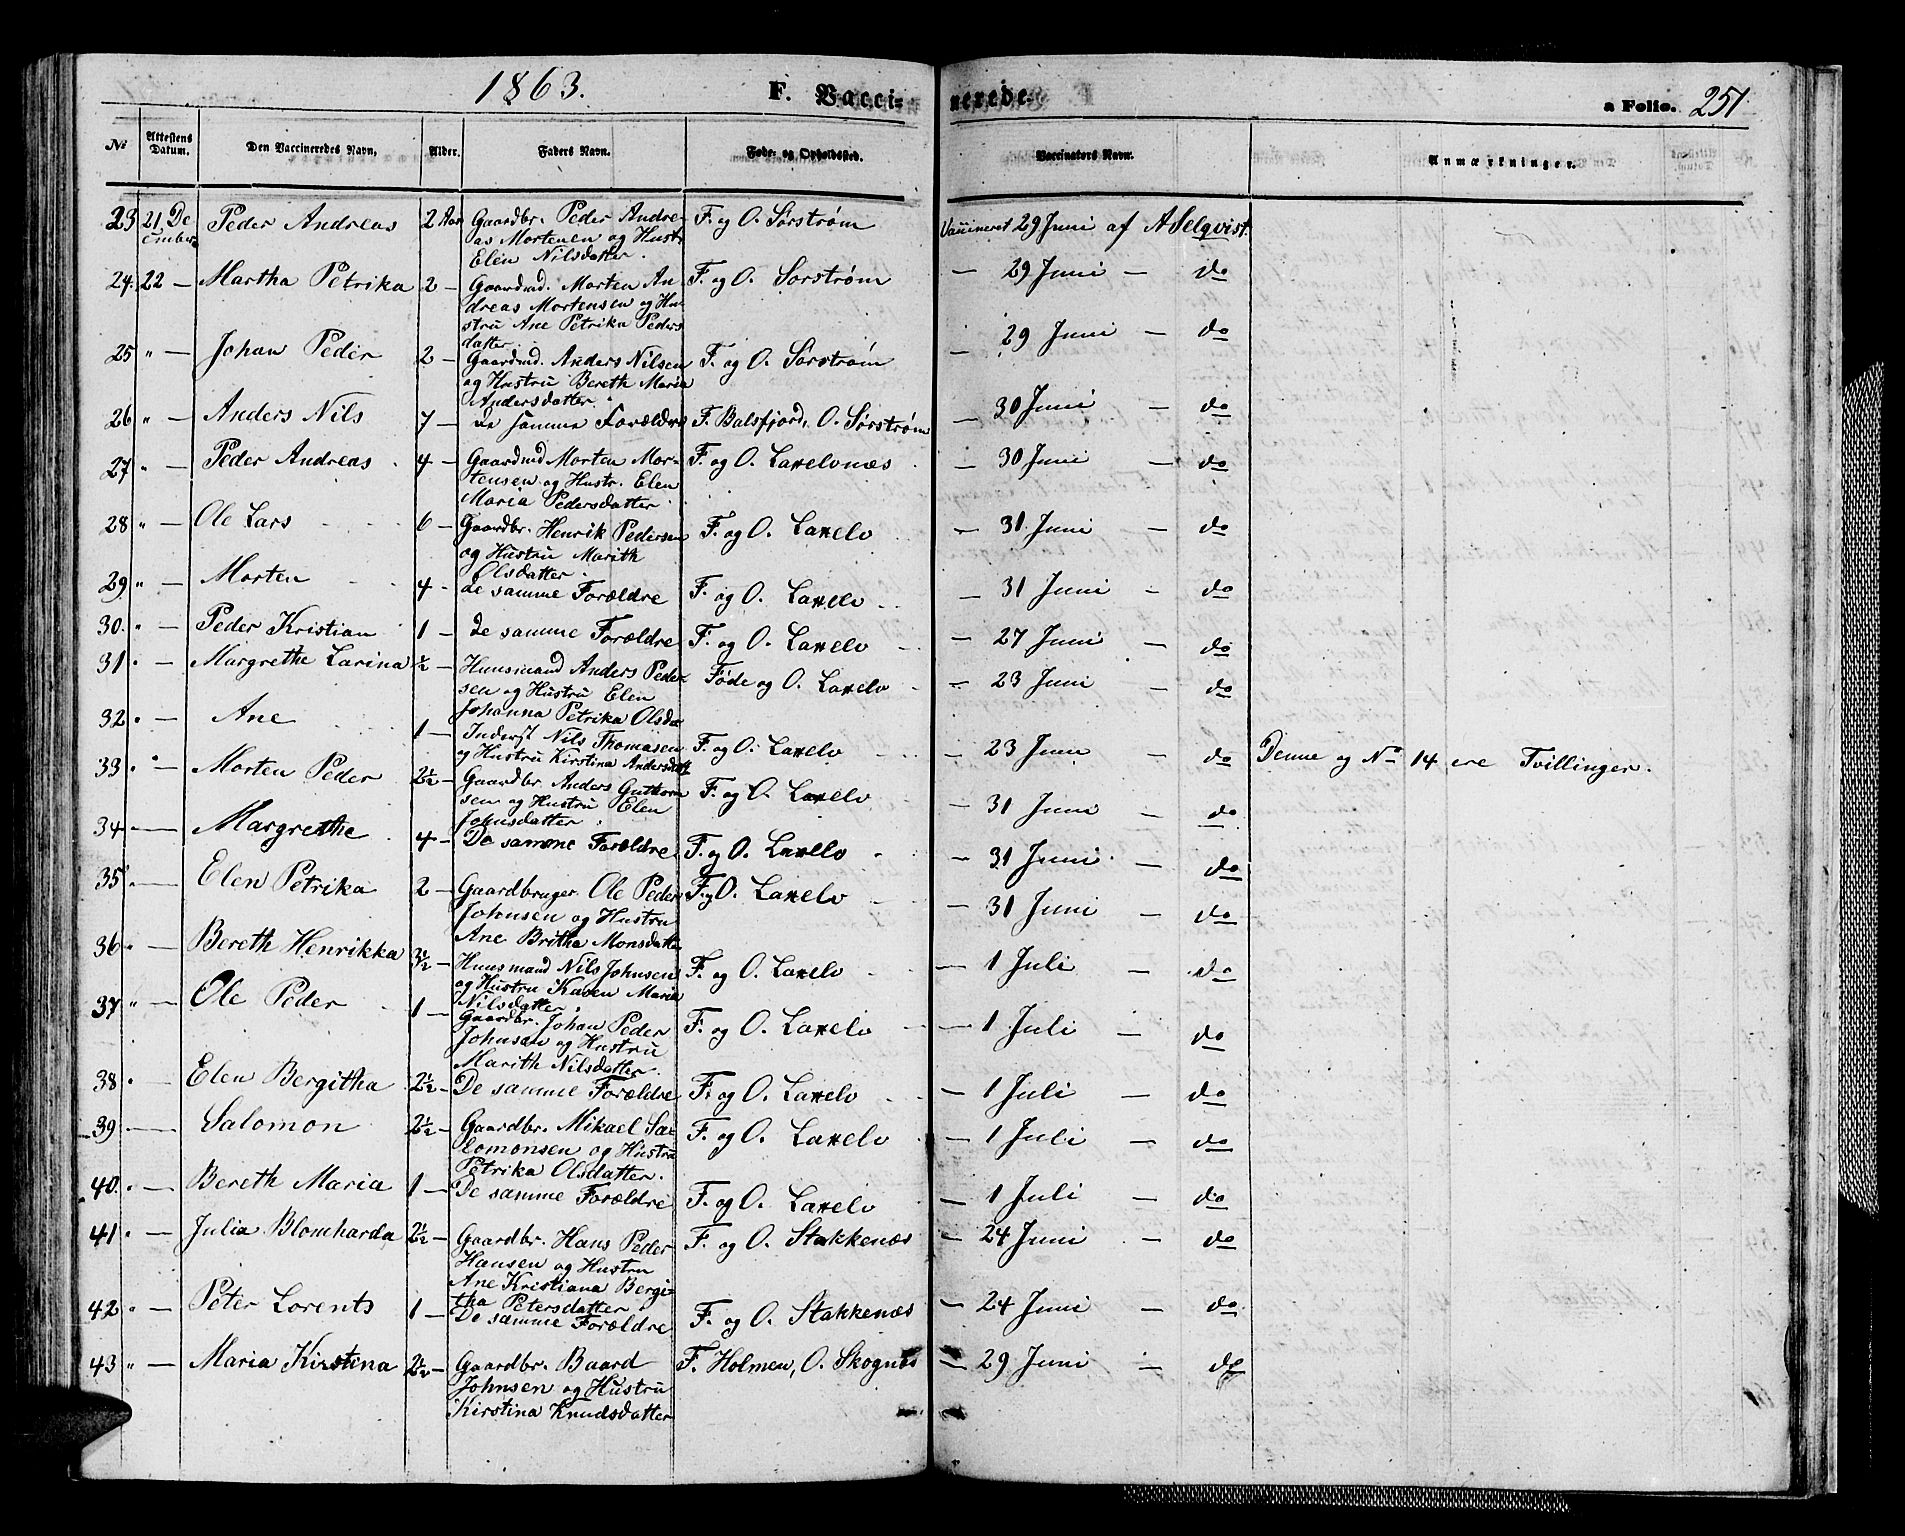 1863. F. Vacci- nerede. a Folio. 251
№ Attestens Datum. Den Vaccineredes Navn. Alder. Faders Navn. Føde- og Opholdssted. Vaccinators Navn. Anmærkninger.
23 21 De Peder Andreas 2 Aar Gaardbr. Peder Andre- F. og O. Sørstrøm Vaccineret 29 Juni af A Selqvist
cember as Mortenen og Hustr
Elen Nilsdatter.
24. 22 — Martha Petrika 2 — Gaardmd. Morten An F. og O. Sorstrøm — 29 Juni — do
dreas Mortensen og Hu-
stru Ane Petrika Peders
datter.
25 " — Johan Peder 2 — Gaardmd. Anders Nilsen F. og O. Sørstrøm — 29 Juni — do
og Hustru Bereth Maria
Andersdatter.
26 " — Anders Nils 7 — De samme Forældre F. Balsfjord, O. Sørstrøm — 30 Juni — do
27 " — Peder Andreas 4 — Gaardmd Morten Mor- F. og O. Lavelvnæs — 30 Juni — do
tensen og Hustr. Elen
Maria Pedersdatter
28 " — Ole Lars 6 — Gaardbr. Henrik Pedersen F. og O. Lavelv — 31 Juni — do
og Hustru Marith
Olsdatter.
29 " — Morten 4 — de samme Forældre F. og O. Lavelv — 31 Juni — do
30. " — Peder Kristian 1 — de samme Forældre F. og O. Lavelv — 27 Juni — do
31 " — Margrethe Larina ½ — Huusmand Anders Peder- Føde og O. Lavelv — 23 Juni — do
sen og Hustru Elen
Johanna Petrika Olsda
32 " — Ane 1 — Inderst Nils Thomasen F. og O. Lavelv — 23 Juni — do Denne og No 14 ere Tvillinger.
og Hustru Kirstina Andersdatt
33 " — Morten Peder 2½ — Gaardbr. Anders Guttorm F. og O. Lavelv — 31 Juni — do
sen og Hustru Elen
Johnsdatter.
34 — Margrethe 4 — De samme Forældre F. og O. Lavelv — 31 Juni — do
35 — Elen Petrika 2 — Gaardbruger Ole Peder F. og O. Lavelv — 31 Juni — do
Johnsen og Hustru
Ane Britha Monsdatter
36 " — Bereth Henrikka 3½ — Huusmand Nils Johnsen F. og O. Lavelv — 1 Juli — do
og Hustru Karen Maria
Nilsdatter.
37 " — Ole Peder 1 — Gaardbr. Johan Peder F. og O. Lavelv — 1 Juli — do
Johnsen og Hustru
Marith Nilsdatter.
38 " — Elen Bergitha 2½ — De samme Forældre F. og O. Lavelv — 1 Juli — do
39 — Salomon 2½ — Gaardbr. Mikael Sa- F. og O. Lavelv — 1 Juli — do
lomonsen og Hustru
Petrika Olsdatter.
40. " — Bereth Maria 1 — De samme Forældre F. og O. Lavelv — 1 Juli — do
41 " — Julia Blomharda 2½ — Gaardbr. Hans Peder F. og O. Stakkenæs — 24 Juni — do
Hansen og Hustru
Ane Kristiana Bergi-
tha Petersdatter
42 " — Peter Lorents 1 — De samme Forældre F. og O. Stakkenæs — 24 Juni — do
43 " — Maria Kirstina 2½ — Gaardbr. Baard F. Holmen, O. Skognæs — 29 Juni — do
Johnsen og Hustru
Kirstina Knudsdatter